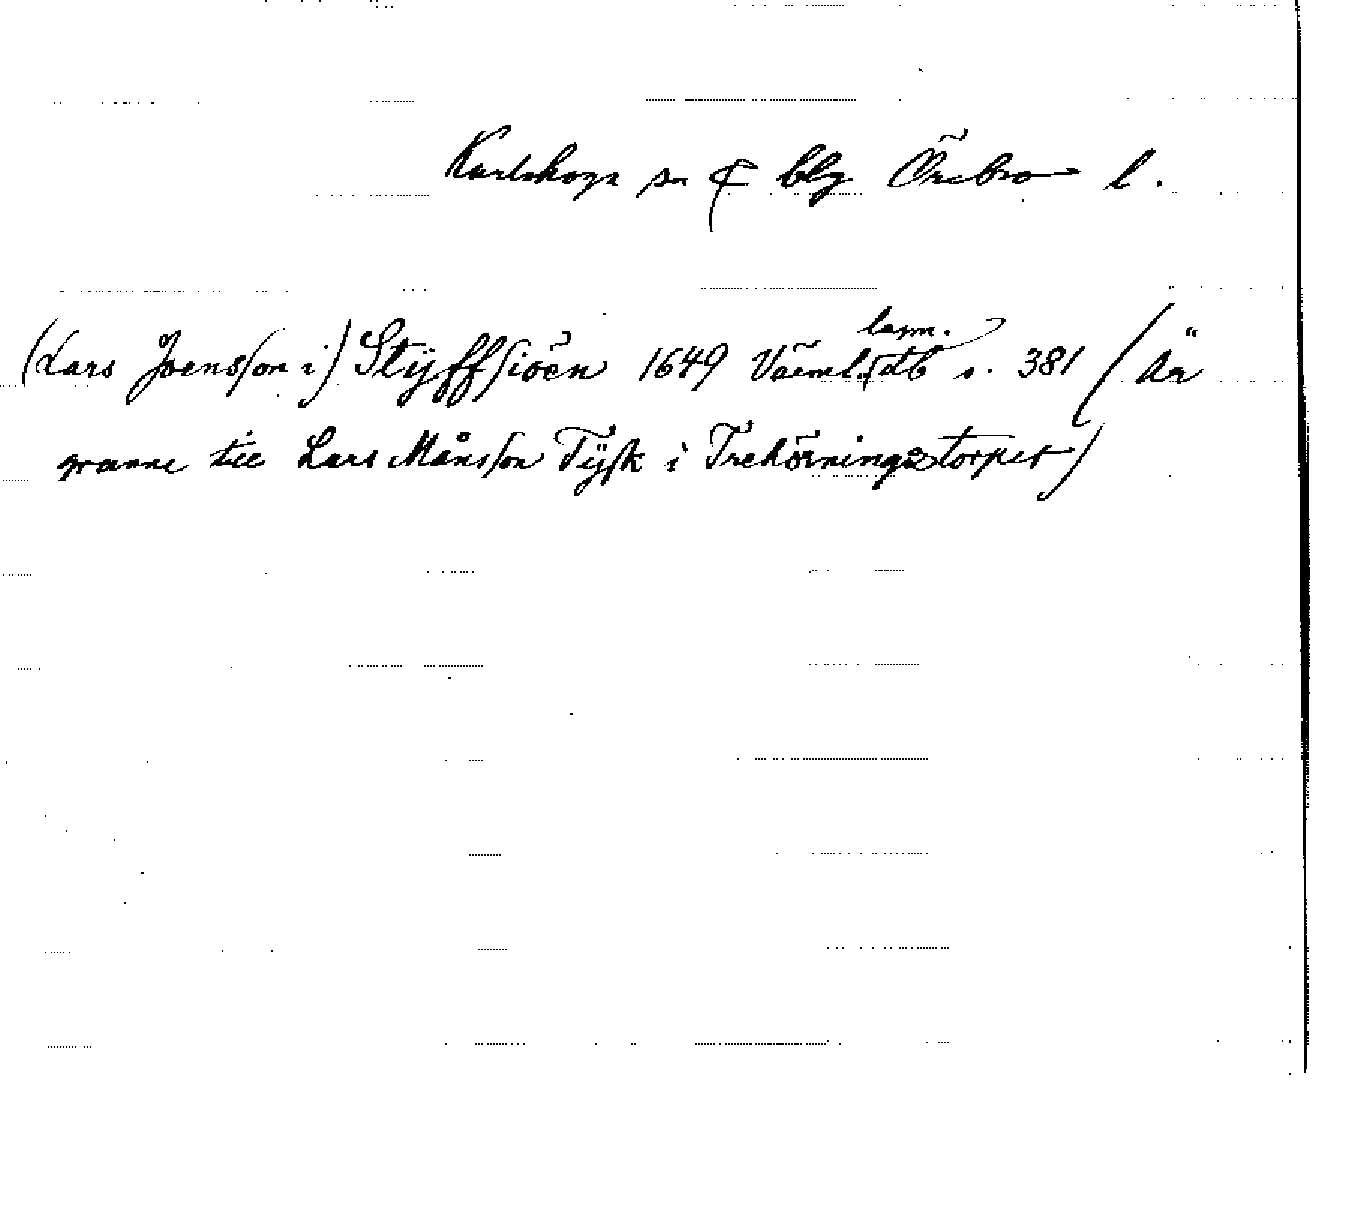 Karlskoga sn & blg Örebro l.
(Lars Joensson i) Stÿffsiöen 1649 Värml. lagm. db s. 381 (Är
granne till Lars Månsson Tÿsk i Trehörningztorpet)